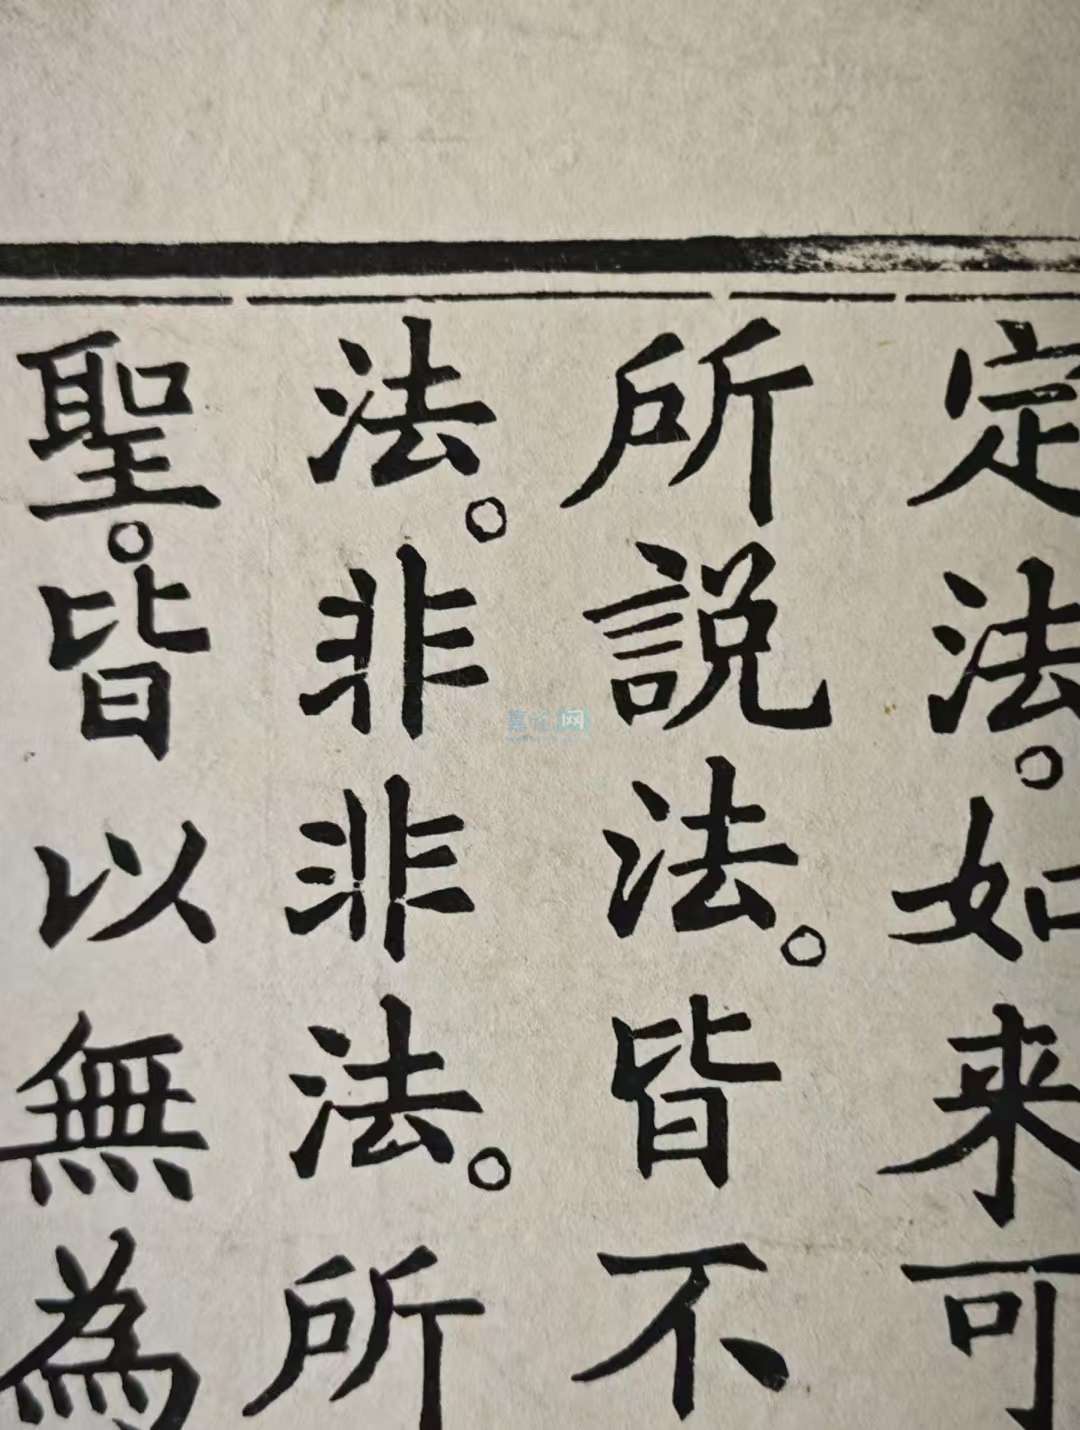 定法。如来可
所說法。皆不
法。非非法。所
聖。皆以無為